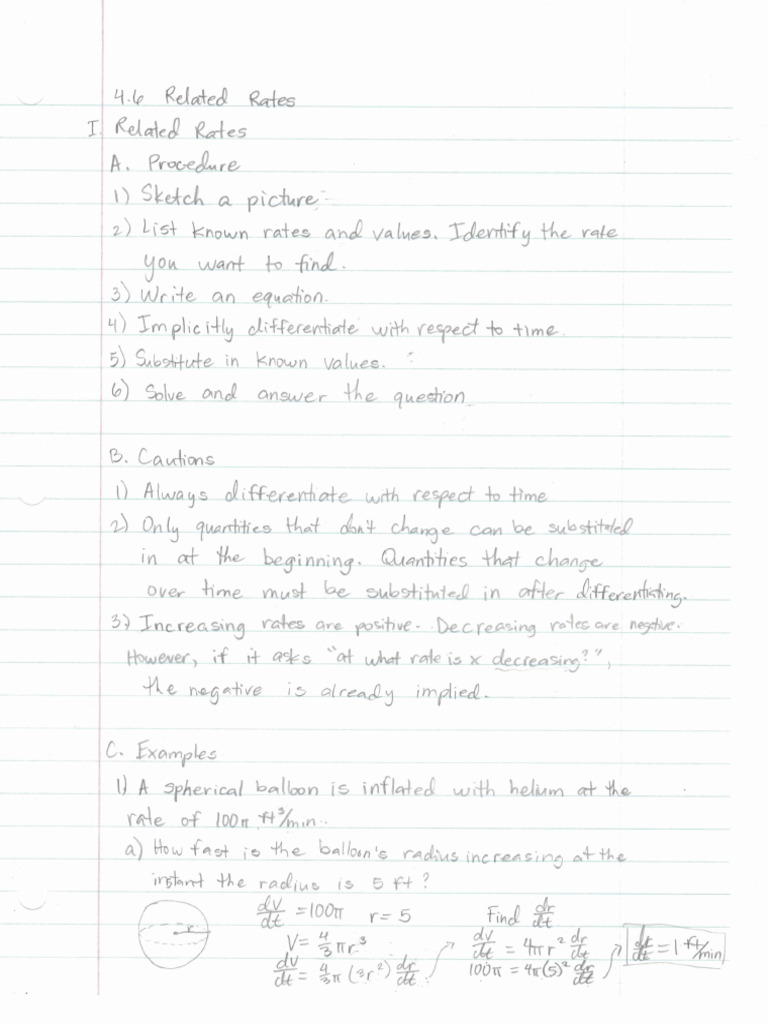 4.6 Related Rates
I. Related Rates
A. Procedure
1) Sketch a picture
2) List known rates and values. Identify the rate
you want to find.
3) Write an equation.
4) Implicitly differentiate with respect to time.
5) Substitute in known values.
6) Solve and answer the question
B. Cautions
1) Always differentiate with respect to time
2) Only quantities that don't change can be substituted
in at the beginning. Quantities that change
over time must be substituted in after differentiating.
3) Increasing rates are positive. Decreasing rates are negative.
However, if it asks "at what rate is x decreasing?",
the negative is already implied.
C. Examples
1) A spherical balloon is inflated with helium at the
rate of 100π ft³/min.
a) How fast is the balloon's radius increasing at the
instant the radius is 5 ft?
dV/dt = 100π r = 5 Find dr/dt
r
V = 4/3 πr³
dV/dt = 4/3 π (3r²) dr/dt
dV/dt = 4πr² dr/dt
100π = 4π(5)² dr/dt
dr/dt = 1 ft/min